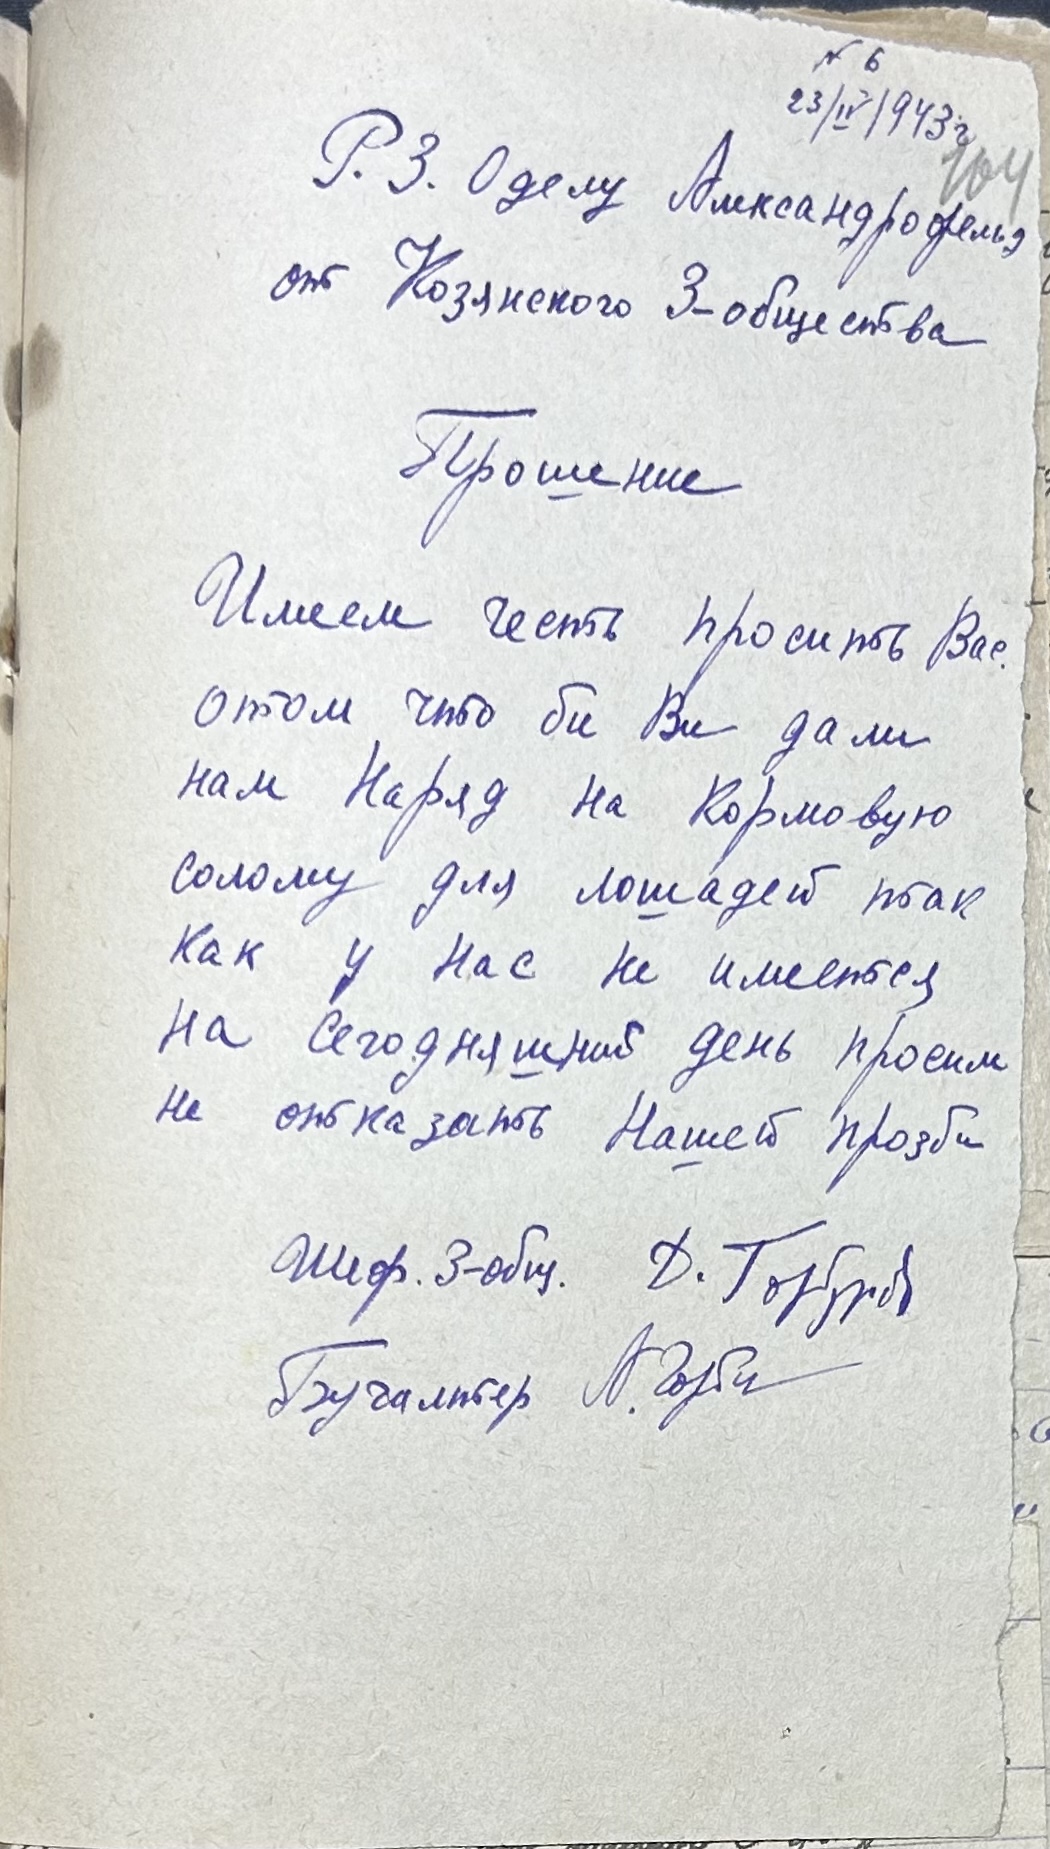 № 6
23/IV 1943 г
104
Р. З. Оделу Александрофельд
от Козянского З-общества
Прошение
Имеем честь просить Вас.
отом что би Ви дали
нам Наряд на Кормовую
солому для лошадей так
как у нас не имеется
на сегодняшний день просим
не отказать Нашей прозби
Шеф. З-общ. Д.
Бухгалтер А.